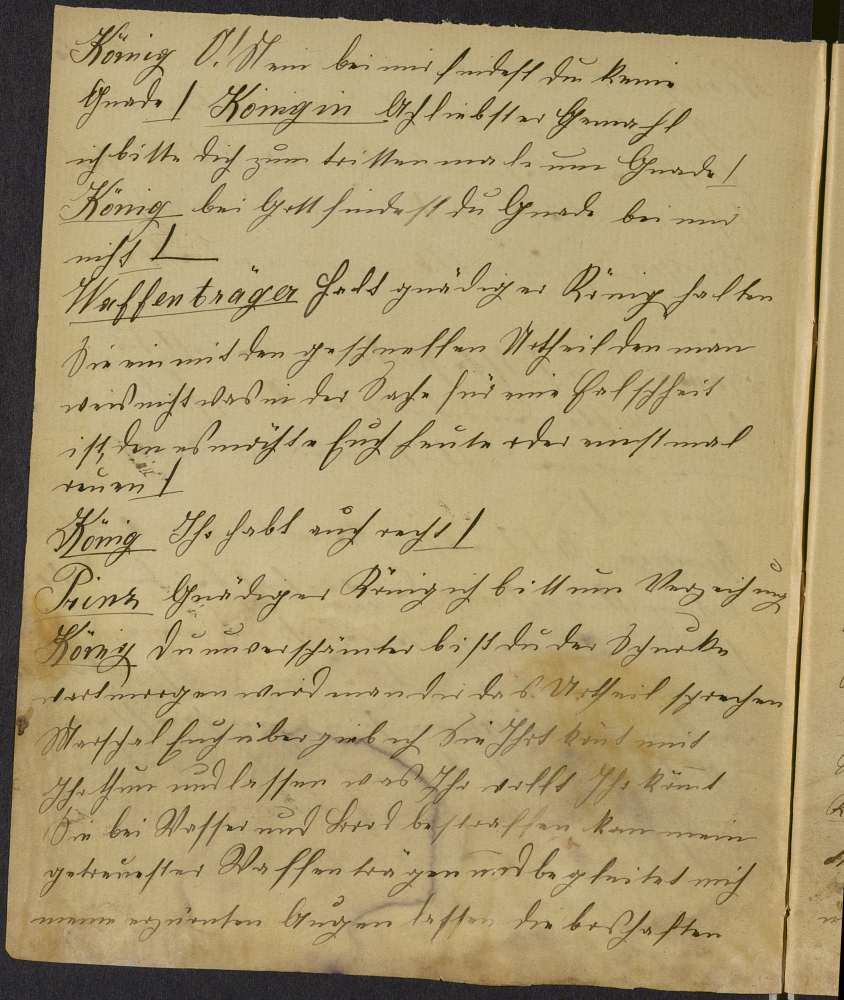 König O! Nein bei mir findest du keine
Gnade! Königin Ach liebster Gemahl
ich bitte dich zum trittenmale um Gnade!
König bei Gott findest du Gnade bei mir
nicht!
Waffenträger Halt gnädiger König halten
Sie ein mit den geschnellen Urtheil den man
weis nicht was in der Sache für eine Falschheit
ist, den es möchte Euch heute oder einstmal
reuen!
König Ihr habt auch recht!
Prinz Gnädiger König ich bitt um Verzeichung
König du unverschämter bist du der Schurke
wart morgen wird man dir das Urtheil sprechen
Marschal Euch übergieb ich Sie Ihr könt mit
Ihr thun und lassen was Ihr wollt Ihr könnt
Sie bei Wasser und Brod bestraffen kan mein
getreuester Waffenträgen und begleitet mich
meine erzürnten Augen lassen die boshaften